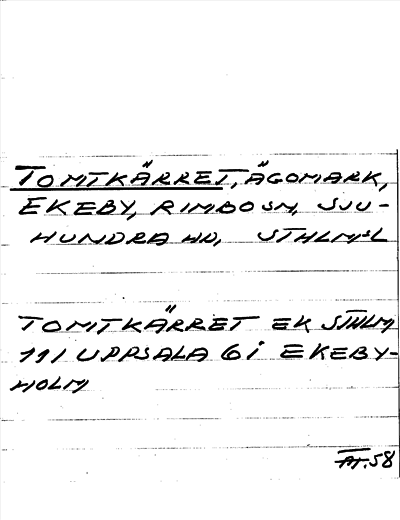 TOMTKÄRRET, ÄGOMARK,
EKEBY, RIMBO SN, SJU-
HUNDRA HD, STHLMS L
TOMTKÄRRET EK STHLM
111 UPPSALA 6 i EKEBY-
HOLM
AT. 58